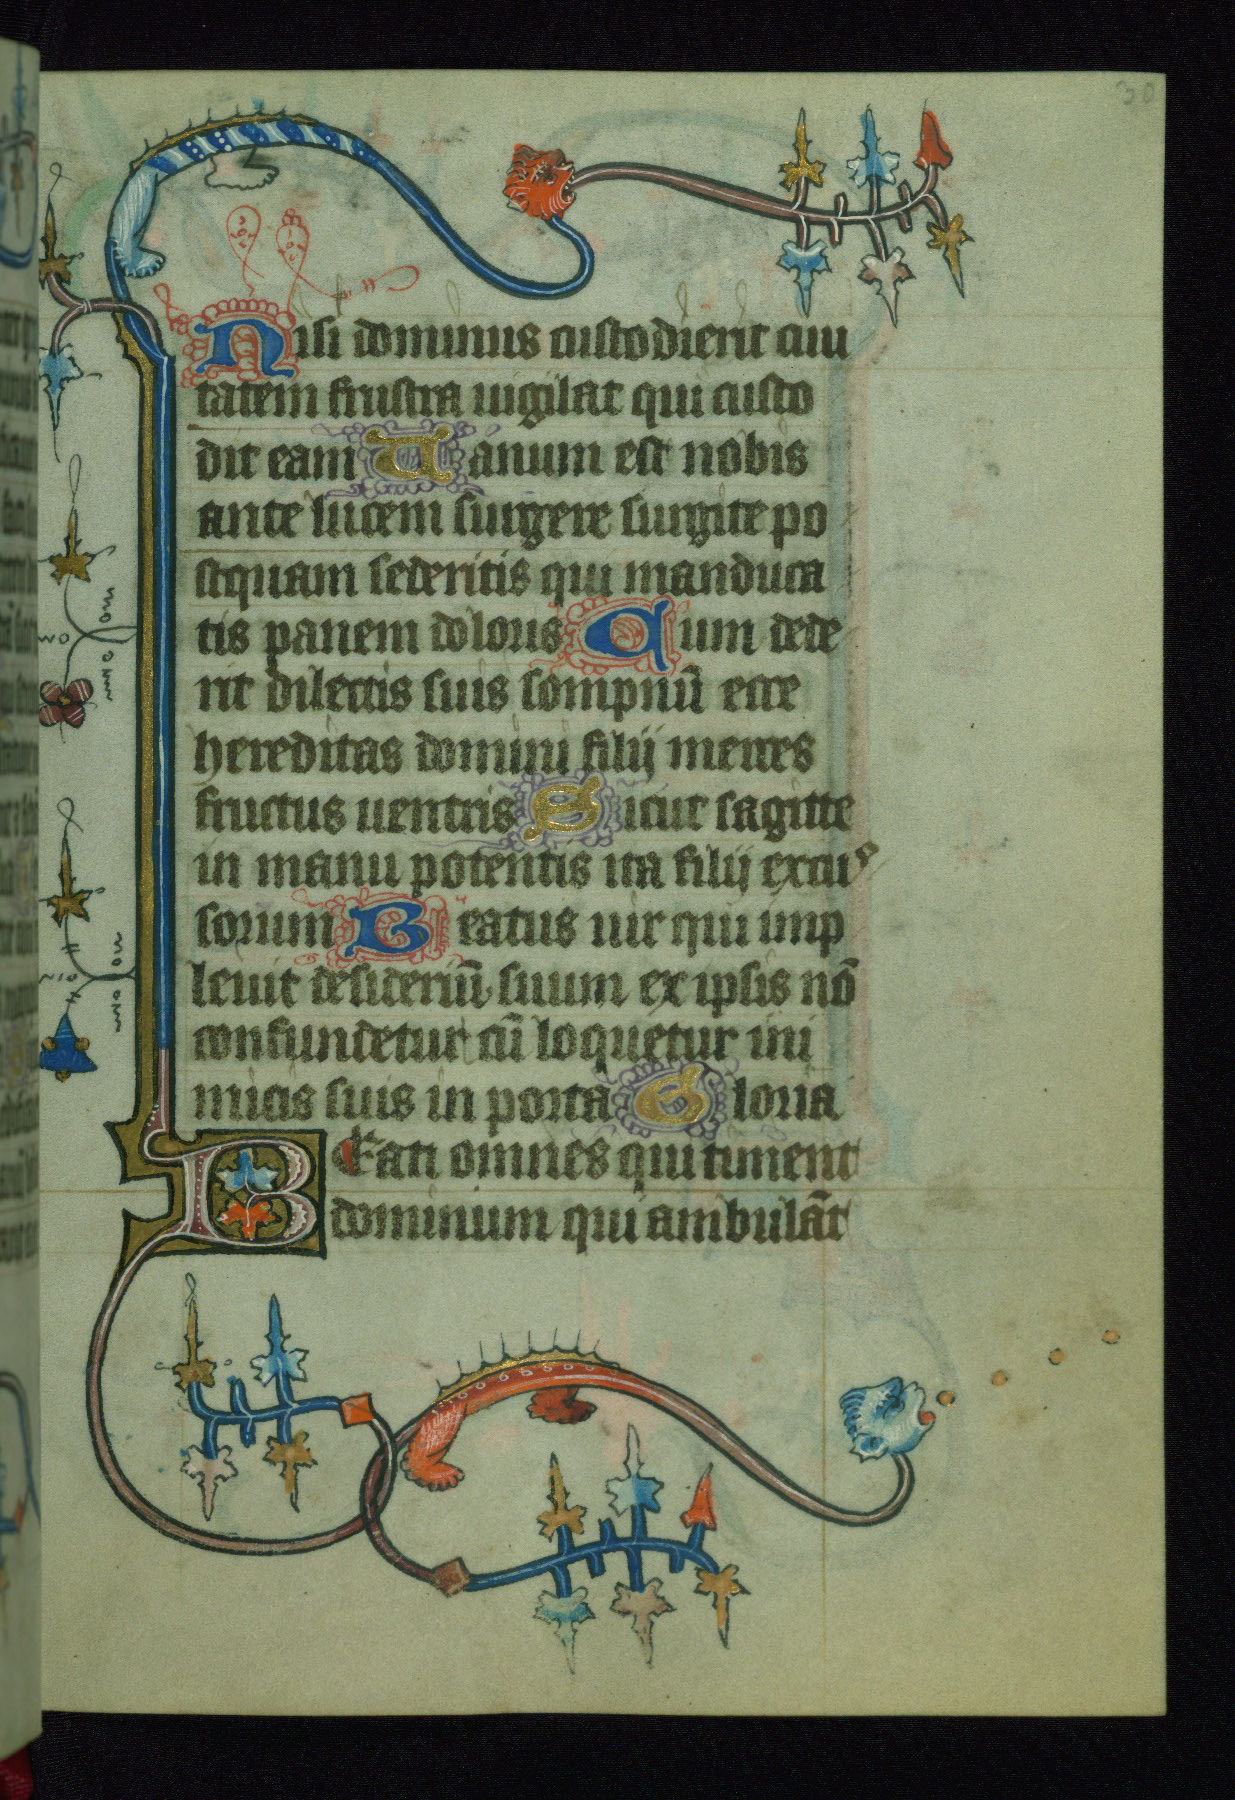 30
Nisi dominus custodierit ciui
tatem frustra uigilat qui custo
dit eam Uanum est nobis
ante lucem surgere surgite po
stquam sederitis qui manduca
tis panem doloris Cum dede
rit dilectis suis sompnū ecce
hereditas domini filij merces
fructus uentris Sicut sagitte
in manu potentis ita filij excus
sorum Beatus uir qui imp
leuit desideriū suum ex ipsis nō
confundetur cū loquetur ini
micis suis in porta Gloria
BEati omnes qui timent
dominium qui ambulāt